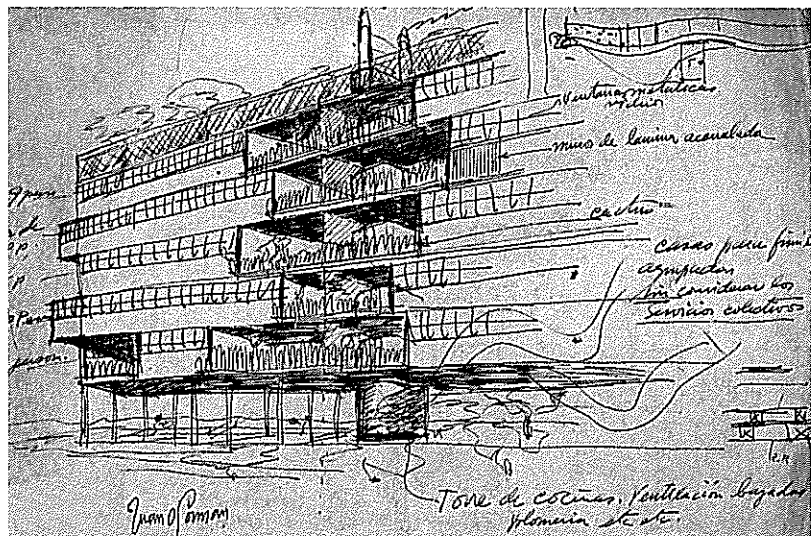 ventanas metalicas
vidrios
muros de lamina acanalada
cactus
casas para
agrupadas
sin considerar los
servicios colectivos
de
P.P.
P
person.
Torre de cocinas. Ventilación bajadas
plomeria etc etc.
Juan O'Gorman